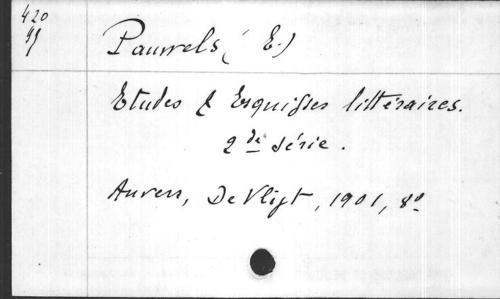 420
Pauwels (E.)
Etudes & Esquisses littéraires.
2de série.
Anvers, De Vligt, 1901, 8º